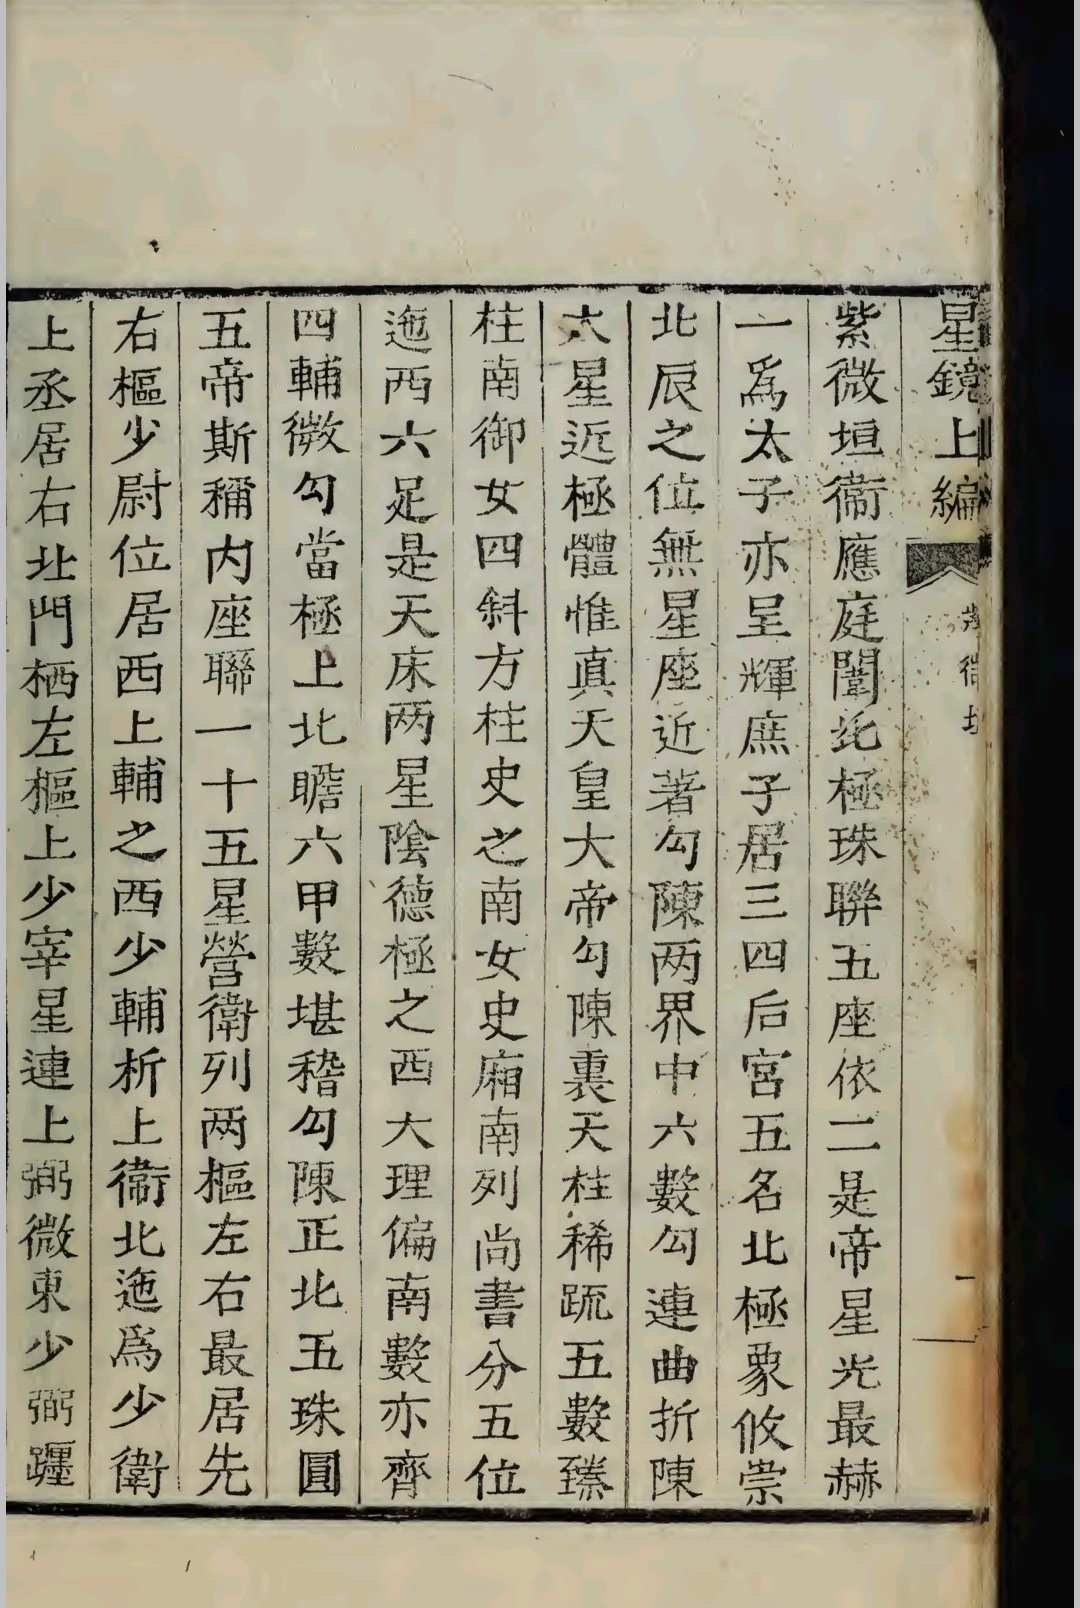 星鏡上編
紫微垣
一
紫微垣衞應庭闈北極珠聯五座依二是帝星光最赫
一爲太子亦呈輝庶子居三四后宮五名北極象攸崇
北辰之位無星座近著勾陳两界中六數勾連曲折陳
大星近極體惟真天皇大帝勾陳裏天柱稀疏五數臻
柱南御女四斜方柱史之南女史廂南列尚書分五位
迤西六足是天床两星陰德極之西大理偏南數亦齊
四輔微勾當極上北瞻六甲數堪稽勾陳正北五珠圓
五帝斯稱内座聯一十五星營衛列两樞左右最居先
右樞少尉位居西上輔之西少輔析上衞北迤爲少衛
上丞居右北門栖左樞上少宰星連上弼微東少弼躔